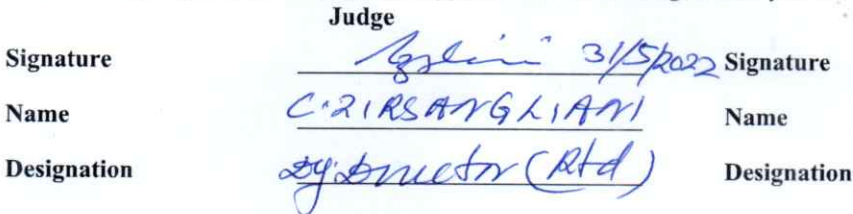 Judge
Signature 31/5/2022 Signature
Name C. ZIRSANGLIANI Name
Designation Dy. Director (Rtd) Designation